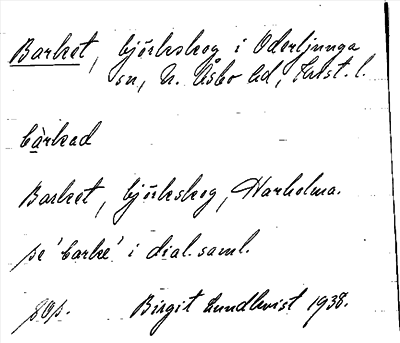 Barket, björkskog i Oderljunga
sn, N. Åsbo hd, Krist. l.
bàrkad
Barket, björkskog, Harholma.
se 'barke' i dial. saml.
Birgit Lundkvist 1938.